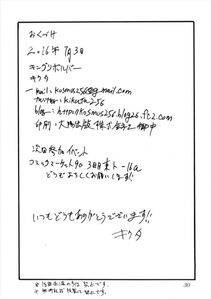 おくづけ
2016年7月3日
キングリボルバー
キクタ
mail: kosmos256@gmail.com
blog: http://kosmos256.blog26.fc2.com
印刷: 大陽出版株式会社 御中
次回参加イベント
コミックマーケット90 3日目 東ト-16a
どうぞよろしくお願いします!!
いつもどうもありがとうございます!!
キクタ
30